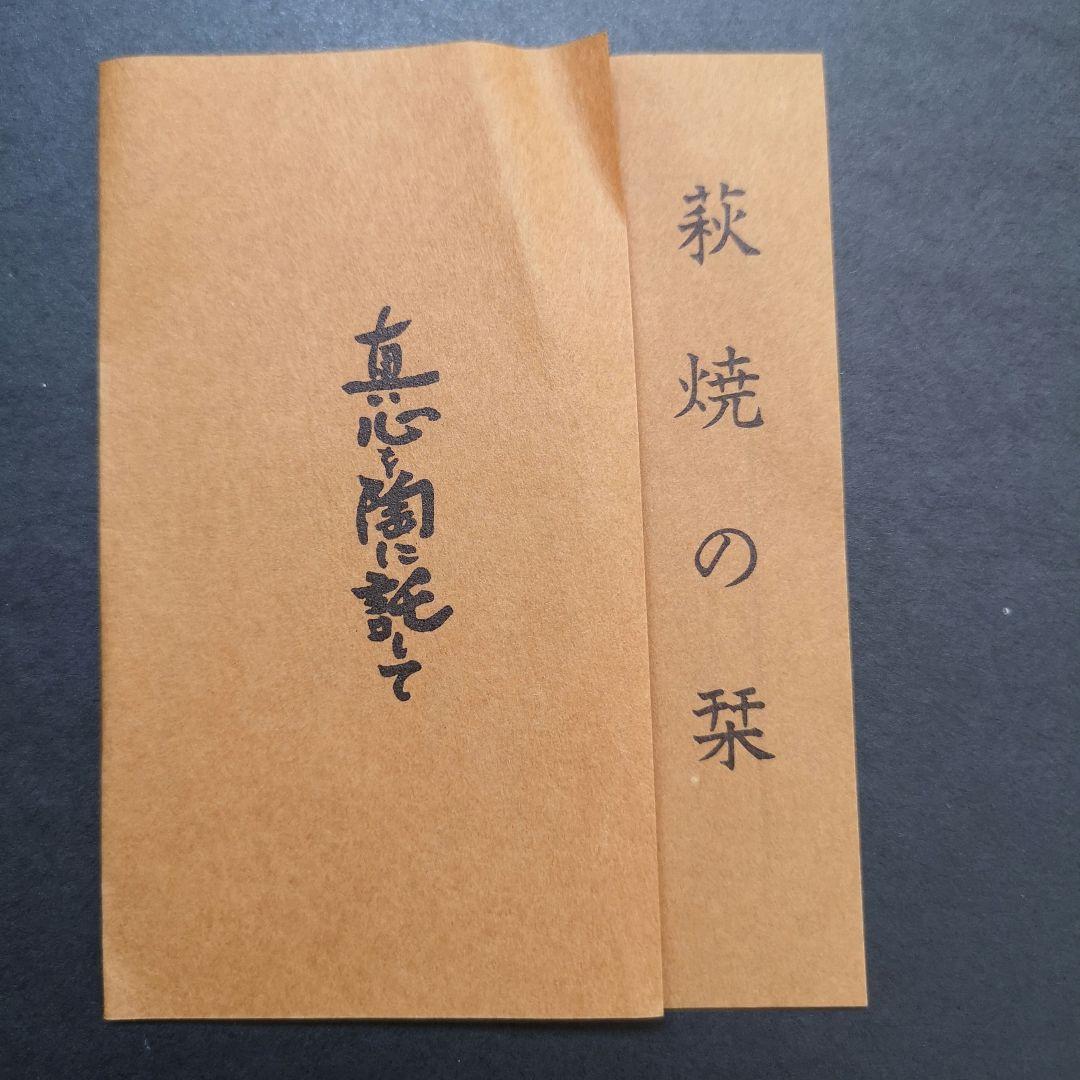 萩焼の栞
真心を陶に託して